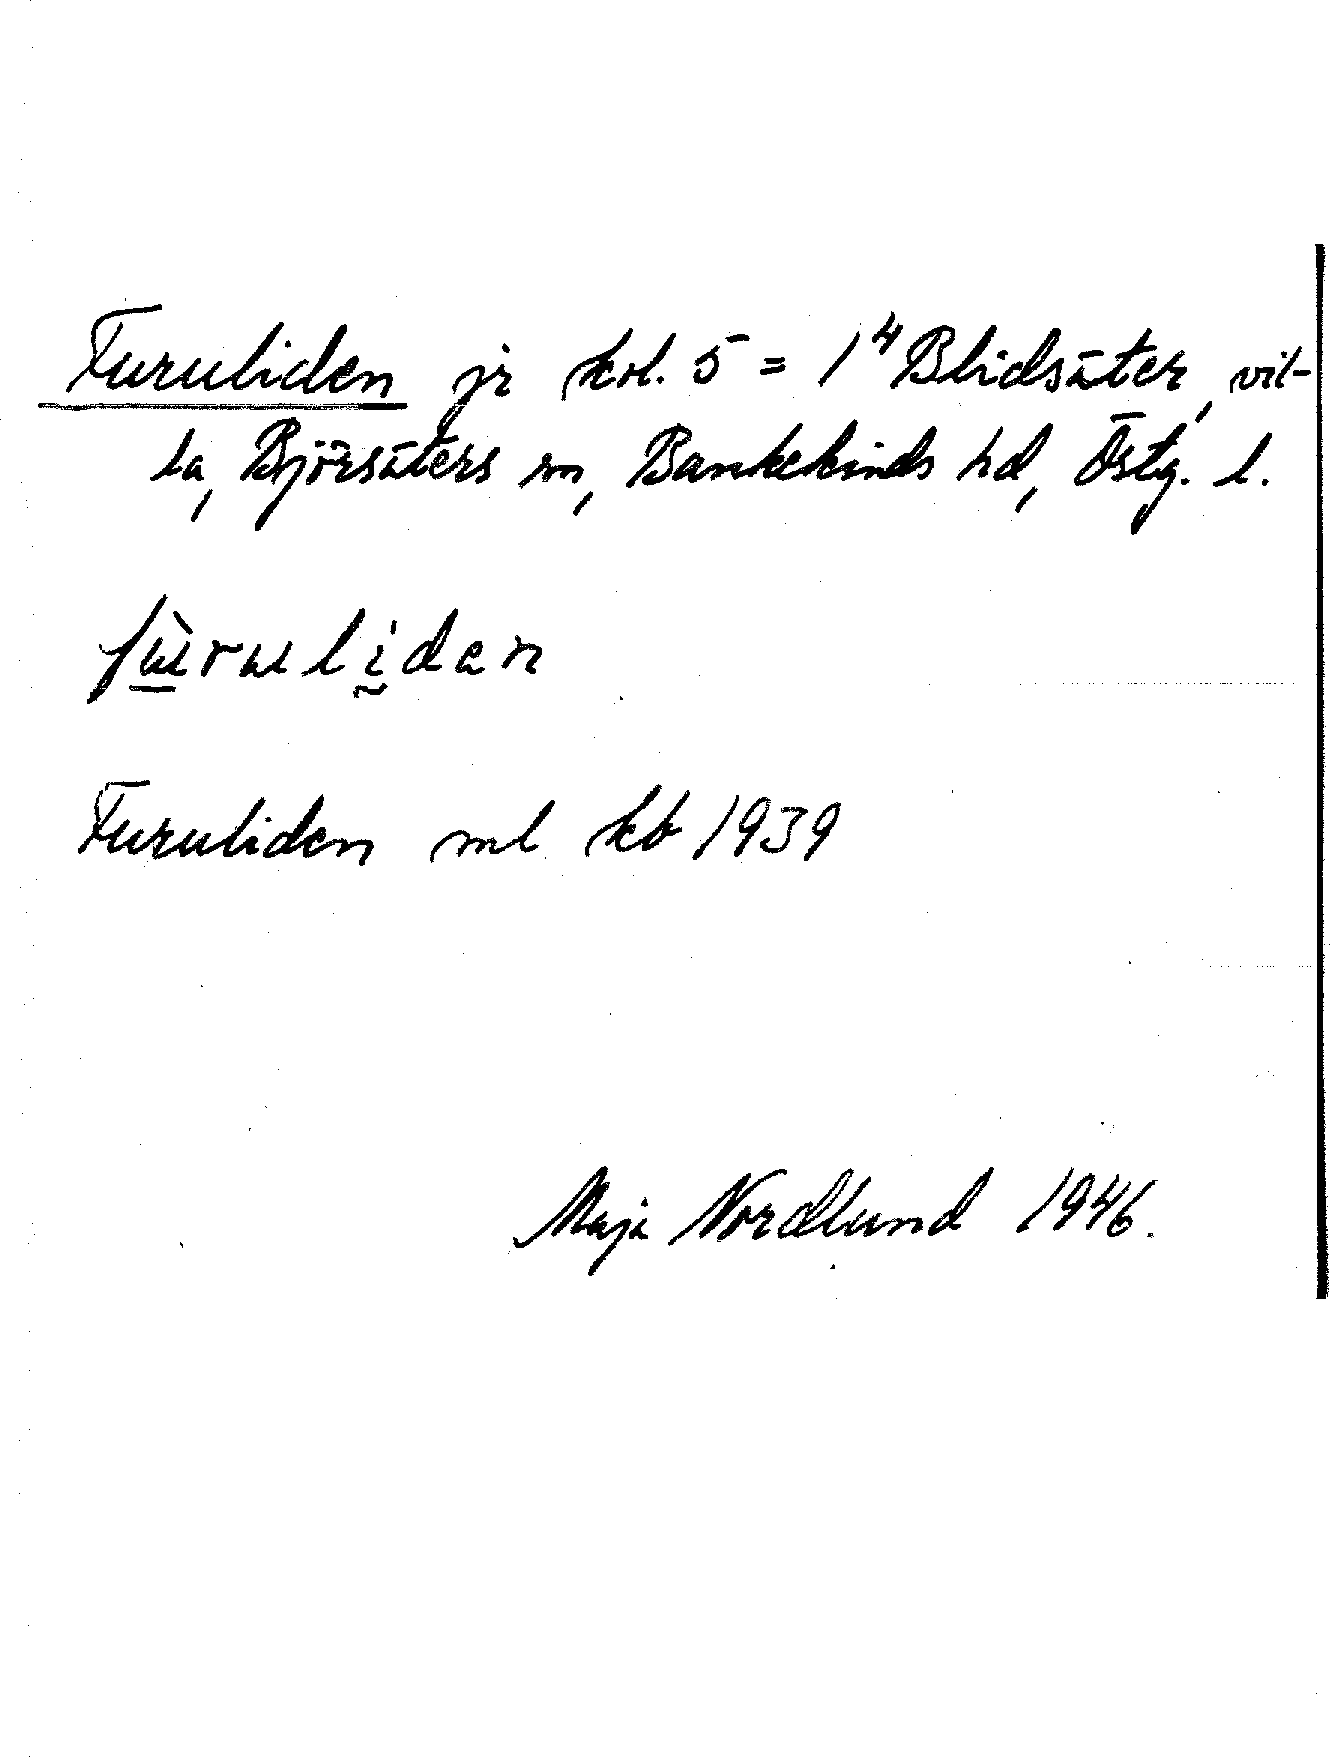 Furuliden jr kol. 5 = 1⁴ Blidsäter, vil-
la, Björsäters sn, Bankekinds hd, Östg. l.
fùruliden
Furuliden ml kb 1939
Maja Nordlund 1946.